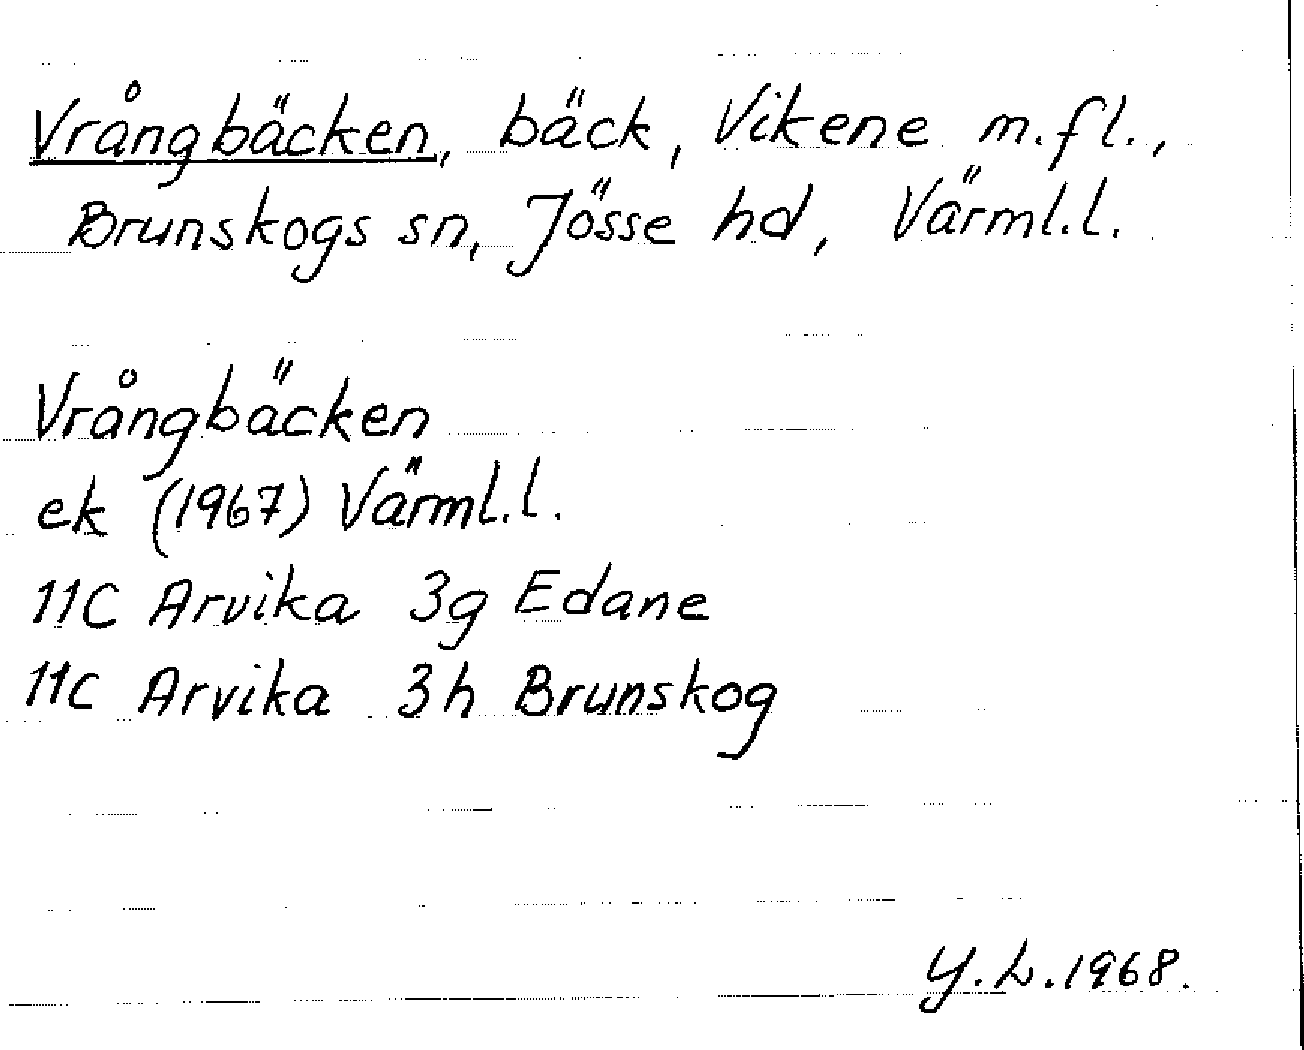 Vrångbäcken, bäck, Vikene m.fl.,
Brunskogs sn, Jösse hd, Värml.l.
Vrångbäcken
ek (1967) Värml.l.
11C Arvika 3g Edane
11C Arvika 3h Brunskog
Y.L.1968.